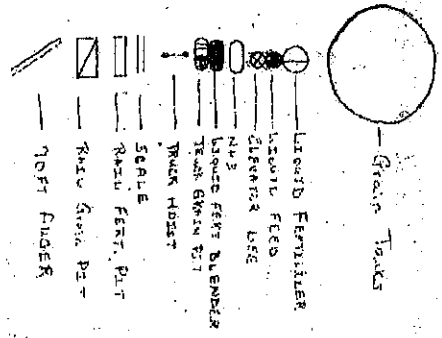 Grain Tanks
LIQUID FERTILIZER
LIQUID FEED
ELEVATOR LEG
NH3
LIQUID FERT BLENDER
TRUCK GRAIN PIT
TRUCK HOIST
SCALE
RAIL FERT. PIT
RAIL GRAIN PIT
70FT AUGER